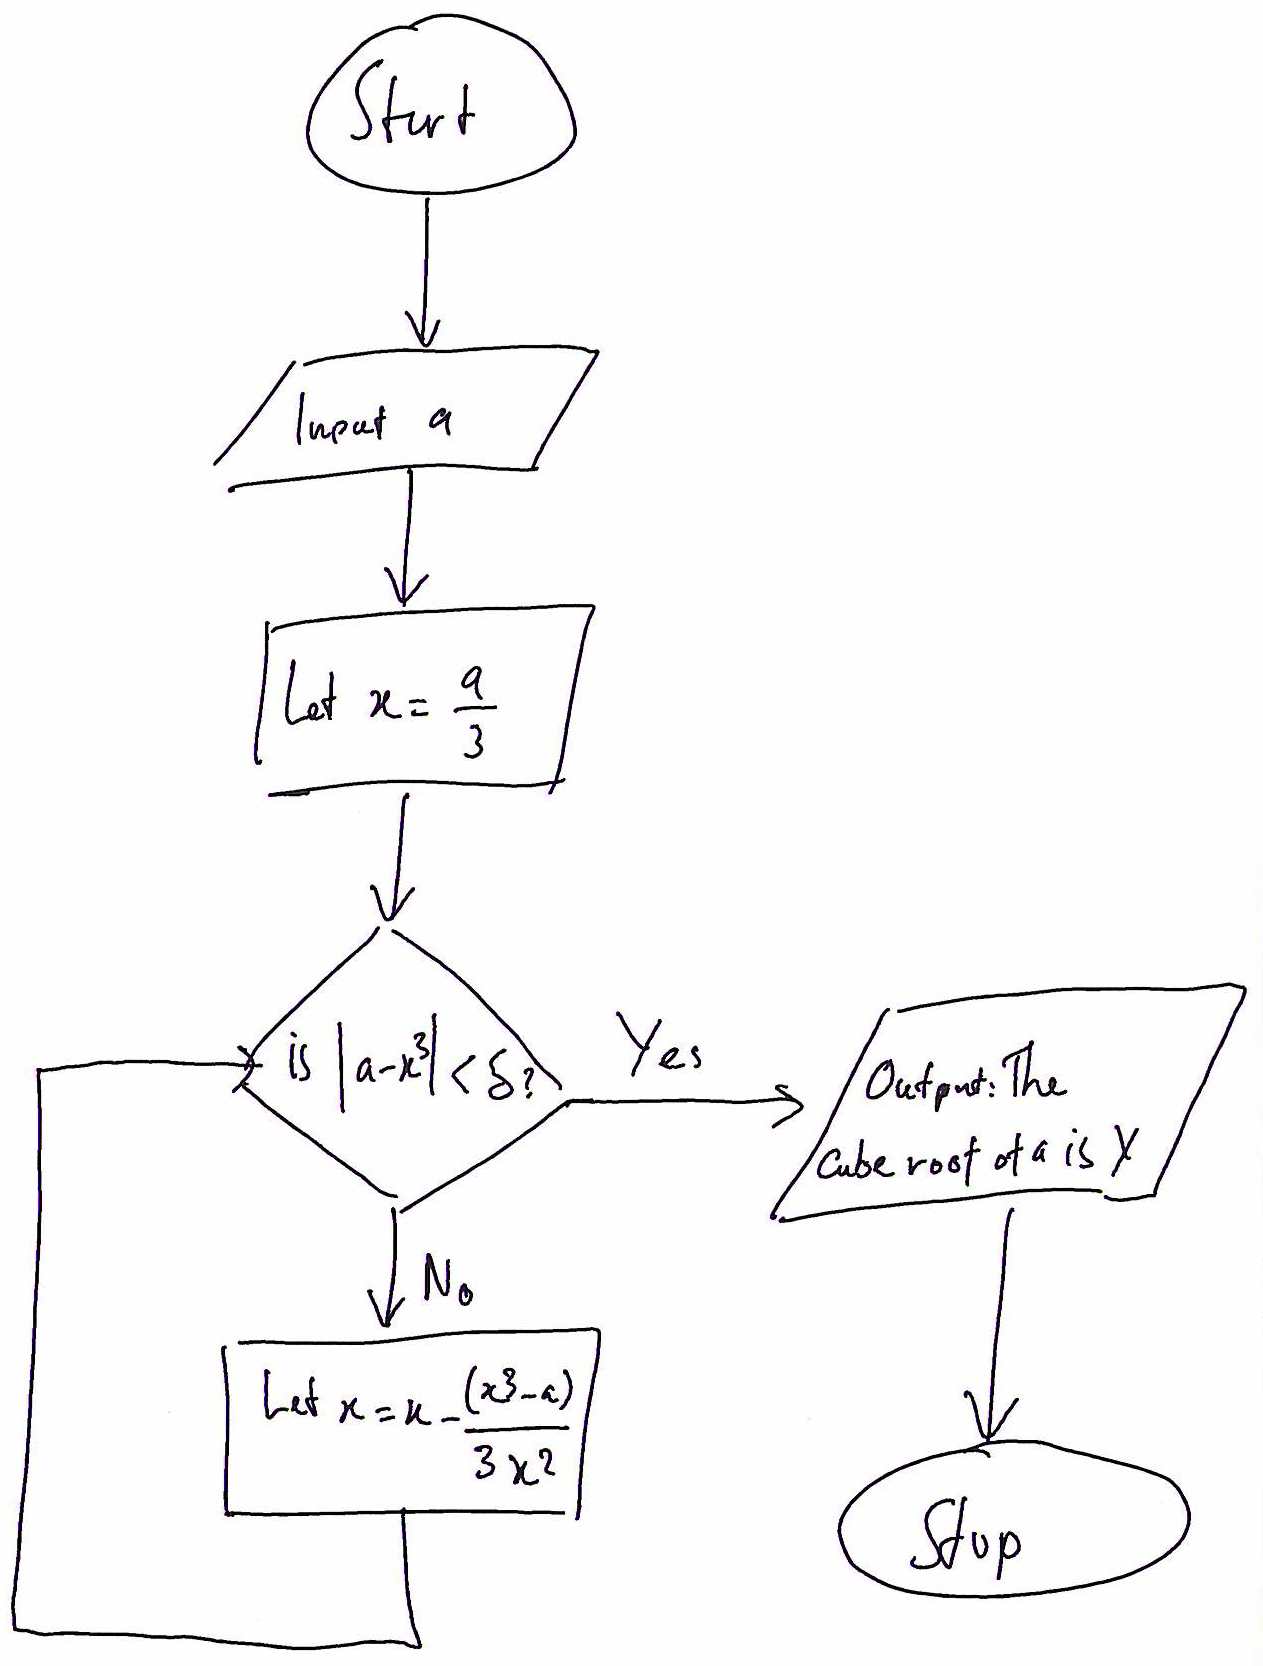 Start
Input a
Let x = a/3
is |a-x³| < δ?
Yes
Output: The
cube root of a is X
No
Let x = x - (x³-a)/3x²
Stop